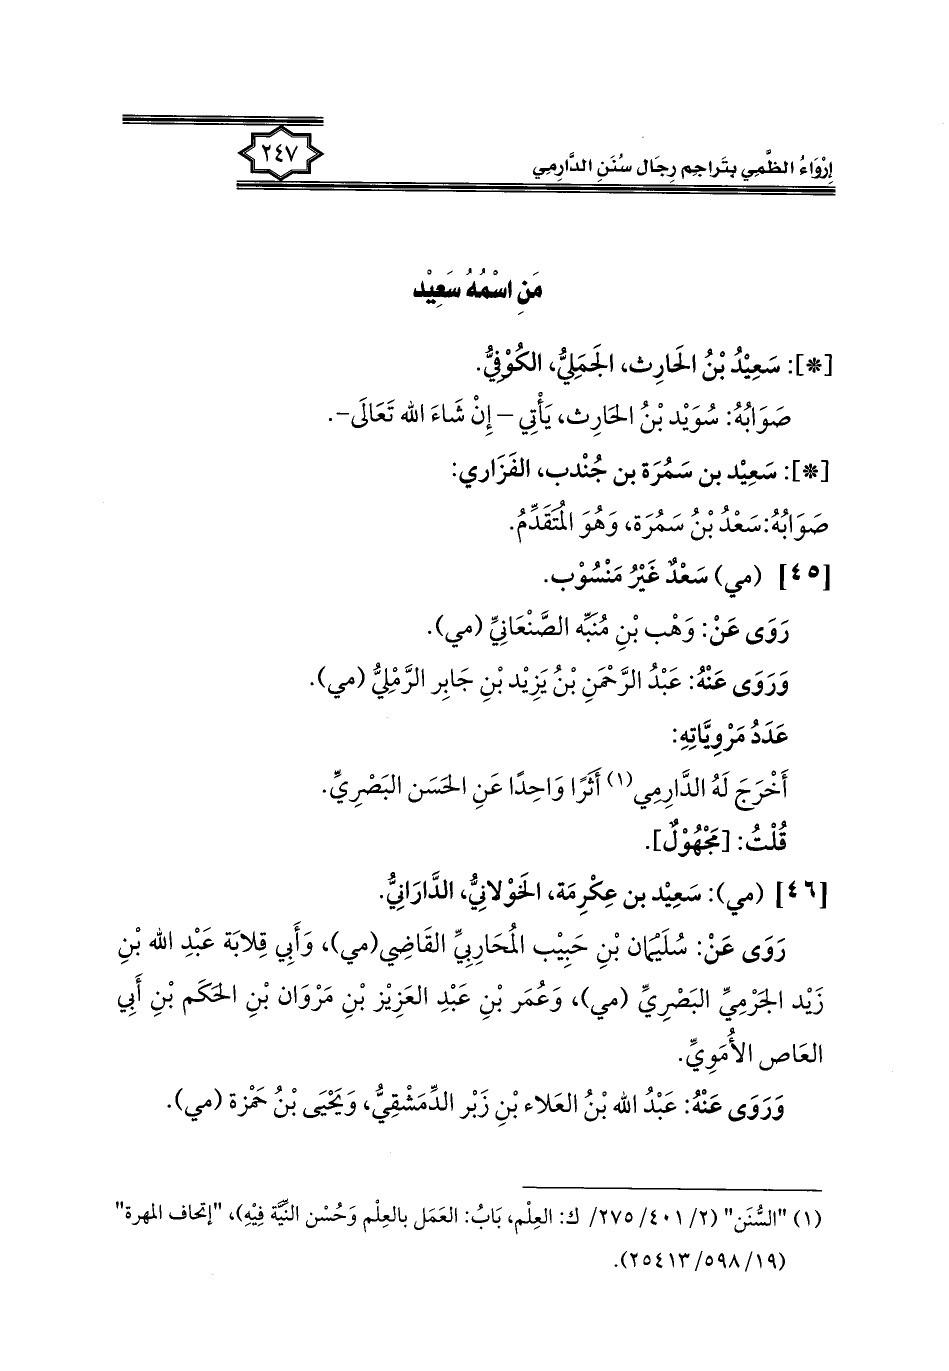 إِرْوَاءُ الظَّمِي بتَراجم رِجَال سُنَنِ الدَّارِمِي
٢٤٧
مَنِ اسْمُهُ سَعِيْد
[*]: سَعِيْدُ بْنُ الحَارِث، الجَمَلِيُّ، الكُوْفِيُّ.
صَوَابُهُ: سُوَيْد بْنُ الحَارِث، يَأْتِي – إِنْ شَاءَ الله تَعَالَى-.
[*]: سَعِيْد بن سَمُرَة بن جُنْدب، الفَزَاري:
صَوَابُهُ:سَعْدُ بْنُ سَمُرَة، وَهُوَ المُتَقَدِّمُ.
[٤٥] (مي) سَعْدٌ غَيْرُ مَنْسُوْب.
رَوَى عَنْ: وَهْب بْنِ مُنَبِّه الصَّنْعَانِيِّ (مي).
وَرَوَى عَنْهُ: عَبْدُ الرَّحْمَنِ بْنُ يَزِيْد بْنِ جَابِر الرَّمْلِيُّ (مي).
عَدَدُ مَرْوِيَّاتِهِ:
أَخْرَجَ لَهُ الدَّارِمِي(١) أَثَرًا وَاحِدًا عَنِ الحَسَن البَصْرِيِّ.
قُلْتُ: [مَجْهُوْلٌ].
[٤٦] (مي): سَعِيْد بن عِكْرِمَة، الخَوْلانِيُّ، الدَّارَانِيُّ.
رَوَى عَنْ: سُلَيْمَان بْنِ حَبِيْب المُحَارِبيِّ القَاضِي(مي)، وَأَبِي قِلابَة عَبْدِ الله بْنِ
زَيْد الجَرْمِيِّ البَصْرِيِّ (مي)، وَعُمَر بْنِ عَبْدِ العَزِيْز بْنِ مَرْوَان بْنِ الحَكَم بْنِ أَبِي
العَاص الأُمَوِيِّ.
وَرَوَى عَنْهُ: عَبْدُ الله بْنُ العَلاء بْنِ زَبْر الدِّمَشْقِيُّ، وَيَحْيَى بْنُ حَمْزَة (مي).
(١) "السُّنَن" (٢/ ٤٠١/ ٢٧٥/ ك: العِلْم، بَابُ: العَمَل بالعِلْم وَحُسْن النِّيَّة فِيْهِ)، "إتحاف المهرة"
(١٩/ ٥٩٨/ ٢٥٤١٣).